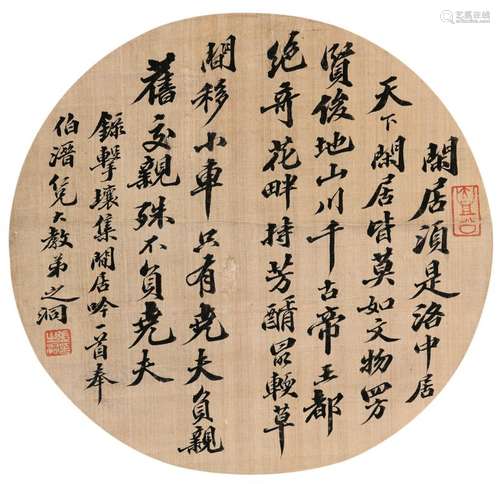 閒居須是洛中居
天下閒居皆莫如文物四方
賢俊地山川千古帝王都
絕奇花畔持芳醑最軟草
間移小車只有堯夫負親
舊交親殊不負堯夫
錄擊壤集閒居吟一首奉
伯潛兄大教弟之洞